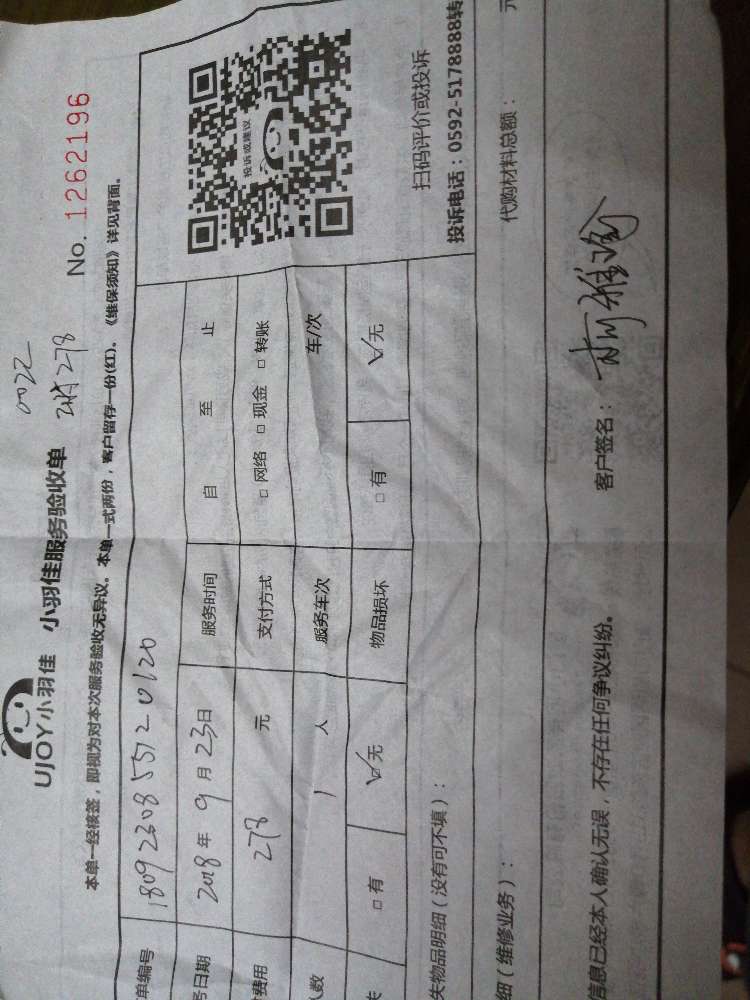 UJOY小羽佳 小羽佳服务验收单
0022
278
No. 1262196
本单一经核签，即视为对本次服务验收无异议。本单一式两份，客户留存一份(红)。《维保须知》详见背面。
单编号 1809230855120120
务日期 2018年9月23日 服务时间 自 至 止
费用 278 元 支付方式 □ 网络 □ 现金 □ 转账
人数 1 人 服务车次 车/次
失 □ 有 ☑无 物品损坏 □ 有 ☑无
投诉或建议
扫码评价或投诉
投诉电话：0592-5178888转
失物品明细（没有可不填）：
细（维修业务）： 代购材料总额： 元
信息已经本人确认无误，不存在任何争议纠纷。 客户签名：